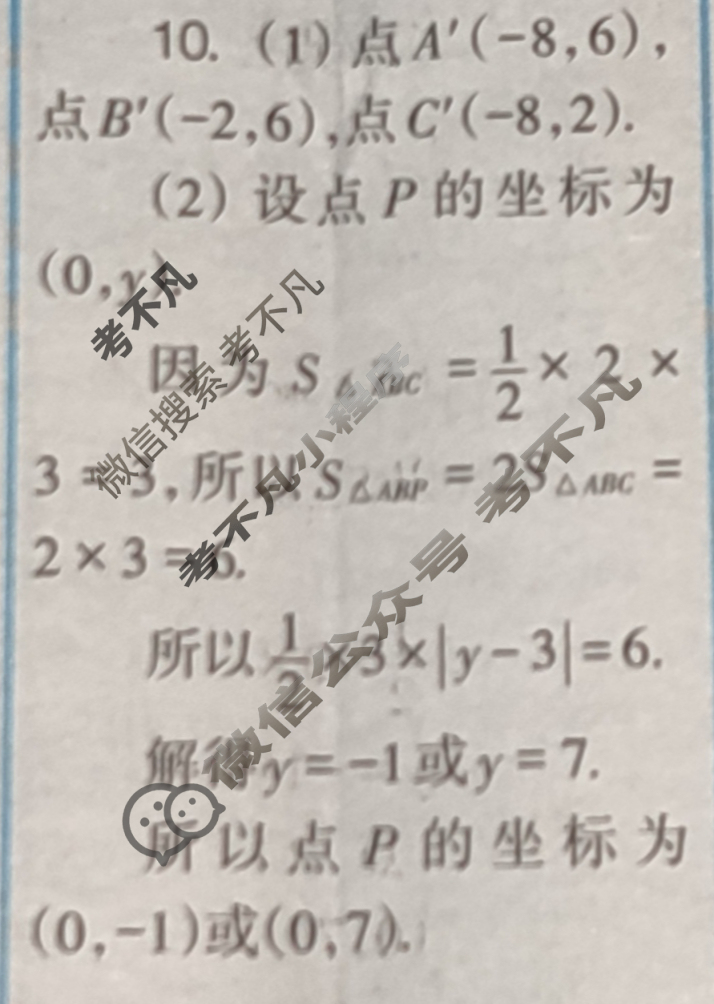 10. (1) 点A′(-8,6),
点B′(-2,6),点C′(-8,2).
(2) 设点P的坐标为
(0,y).
因为 S△ABC = 1/2 × 2 ×
3 = 3,所以S△ABP = 2S△ABC =
2 × 3 = 6.
所以 1/2 ×3×|y-3|=6.
解得y=-1或y=7.
所以点P的坐标为
(0,-1)或(0,7).
考不凡
微信搜索 考不凡
考不凡小程序
微信公众号 考不凡